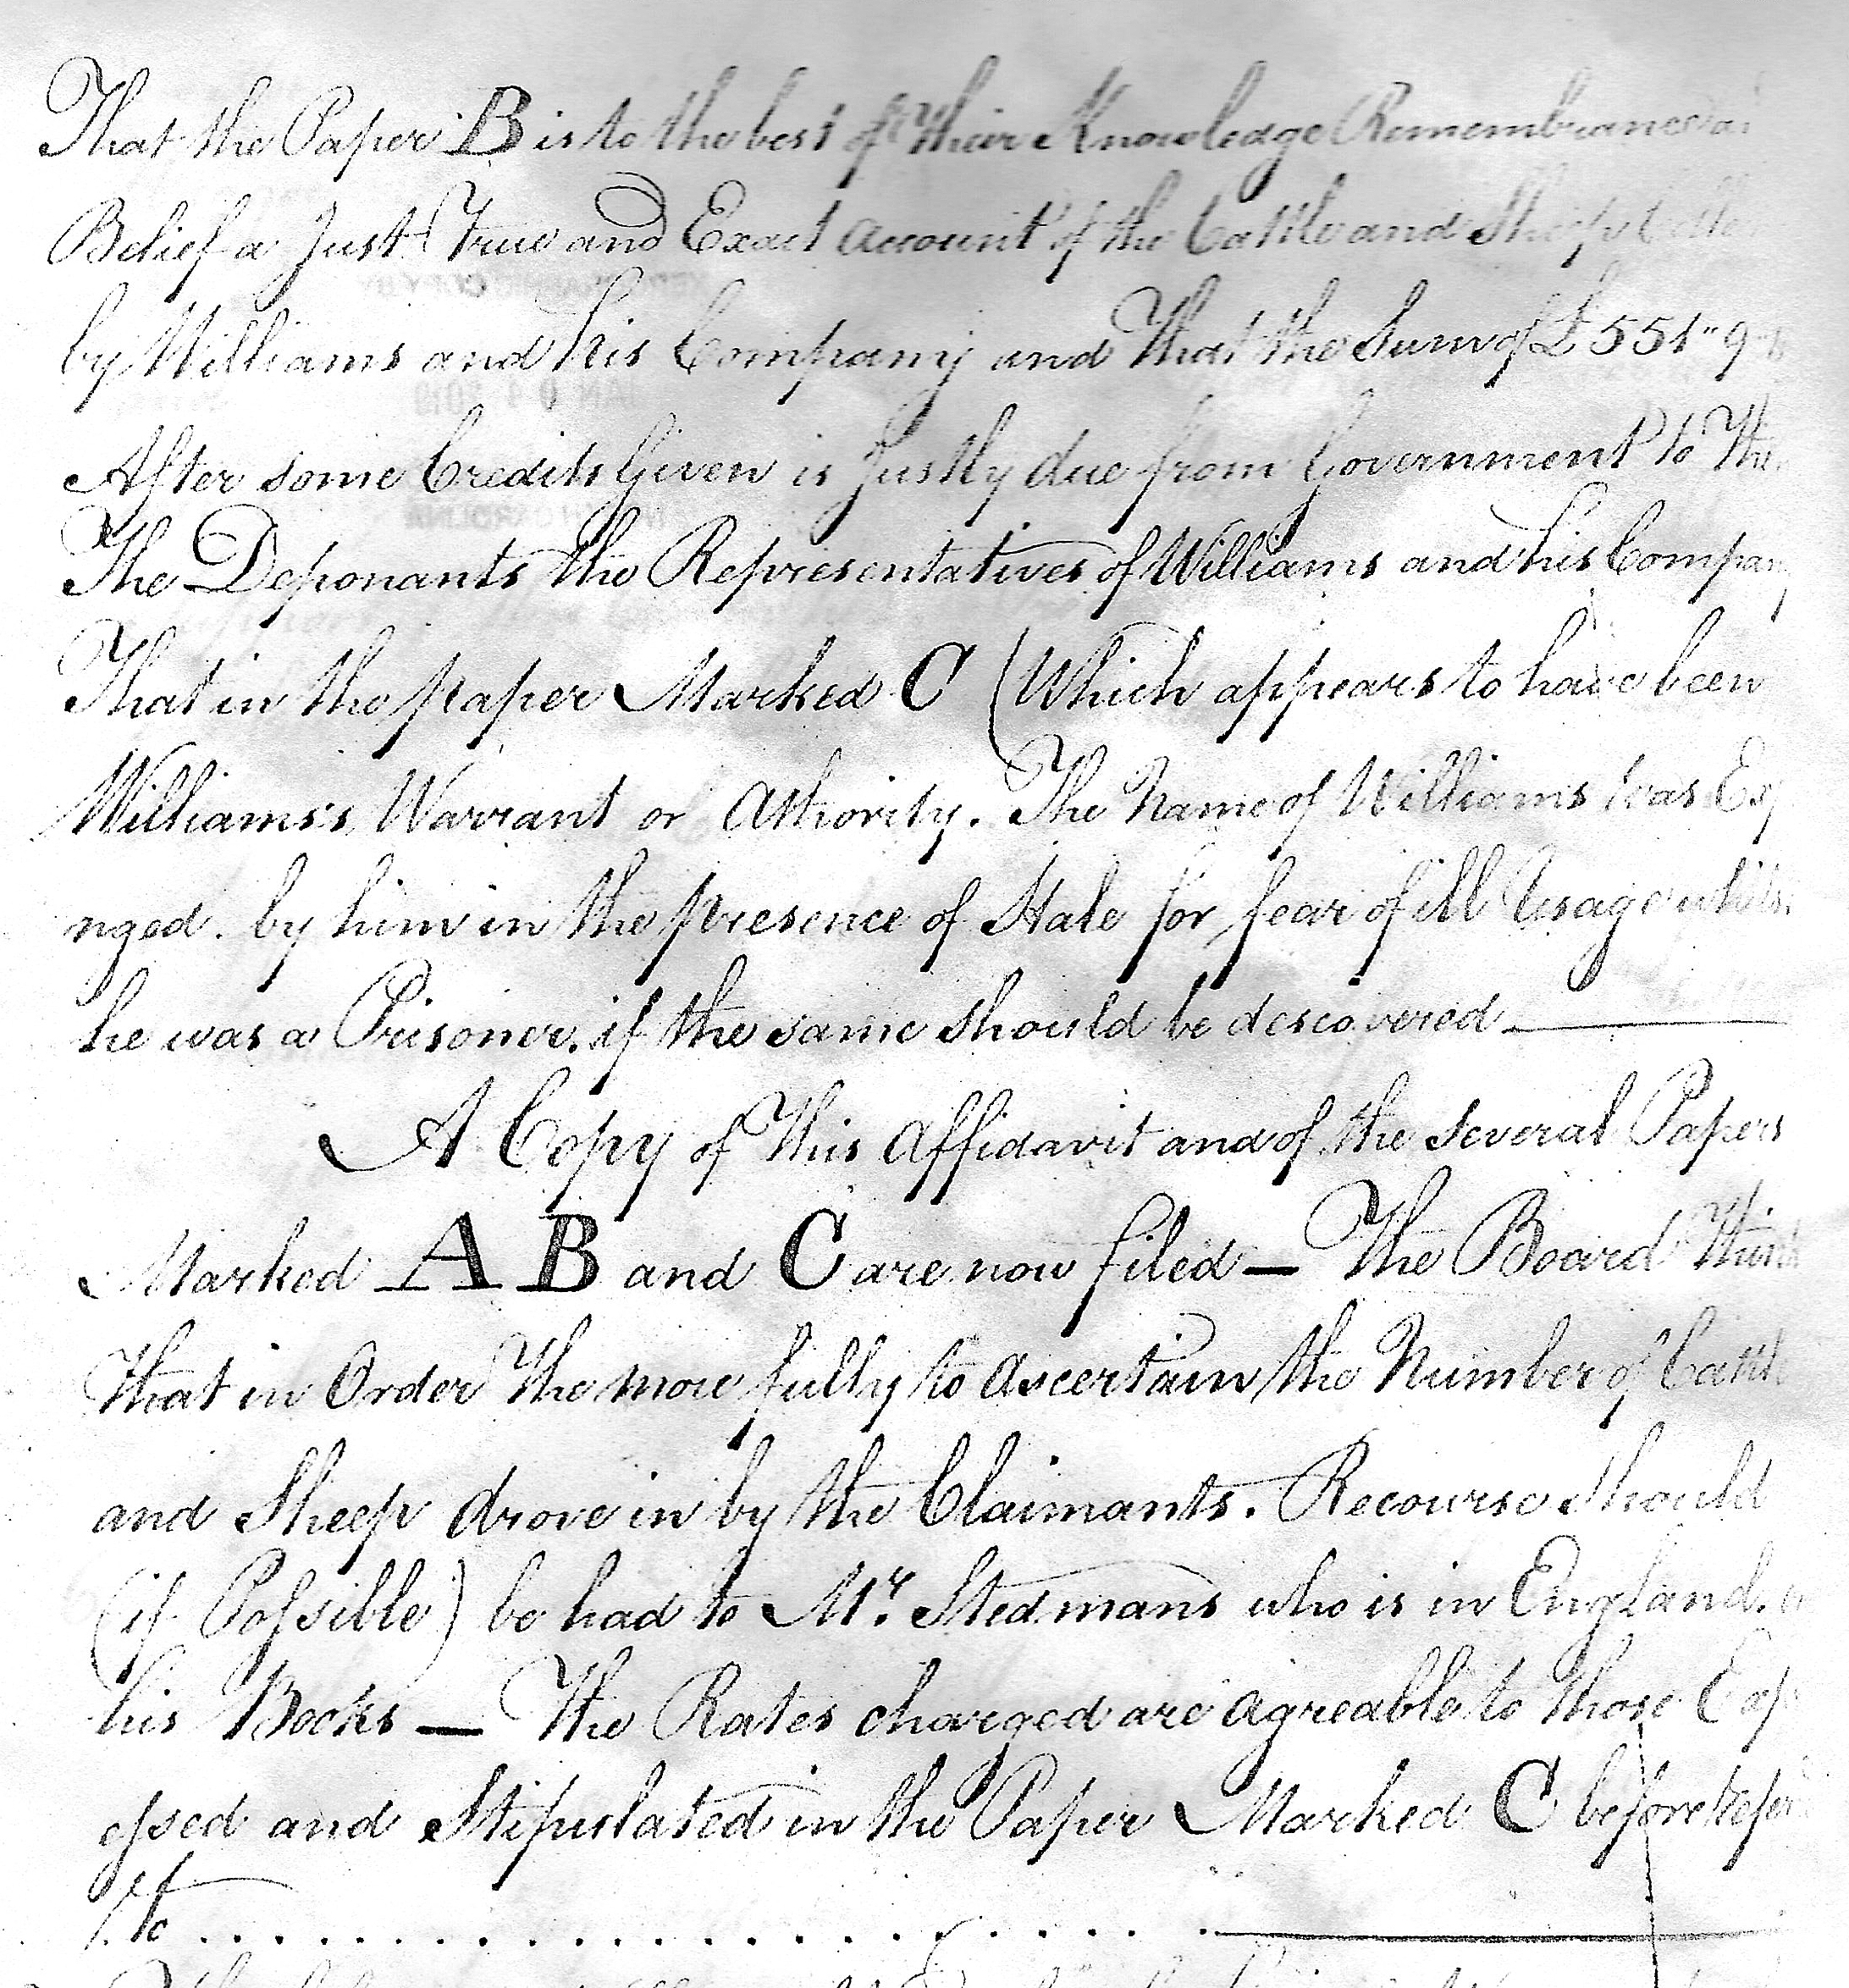 That the Paper B is to the best of their Knowledge Remembrance
Belief a Just True and Exact Account of the Cattle and Sheep
by Williams and his Company and That the Sum of £551" 9
After some Credits Given is Justly due from Government to
The Deponants the Representatives of Williams and his Company
That in the paper Marked C (Which appears to have been
Williams's Warrant or Athority. The Name of Williams was Ex
nged. by him in the presence of Hale for fear of ill Usage whilst
he was a Prisoner. if the same should be descovered
A Copy of This Affidavit and of the Several Papers
Marked A B and C are now filed — The Board Think
That in Order The more fully to ascertain the Number of Cattle
and Sheep drove in by the Claimants. Recourse Should
(if Possible) be had to Mr. Stedmans who is in England.
his Books — The Rates charged are agreable to those Exp
essed and Stipulated in the Paper Marked C before
to